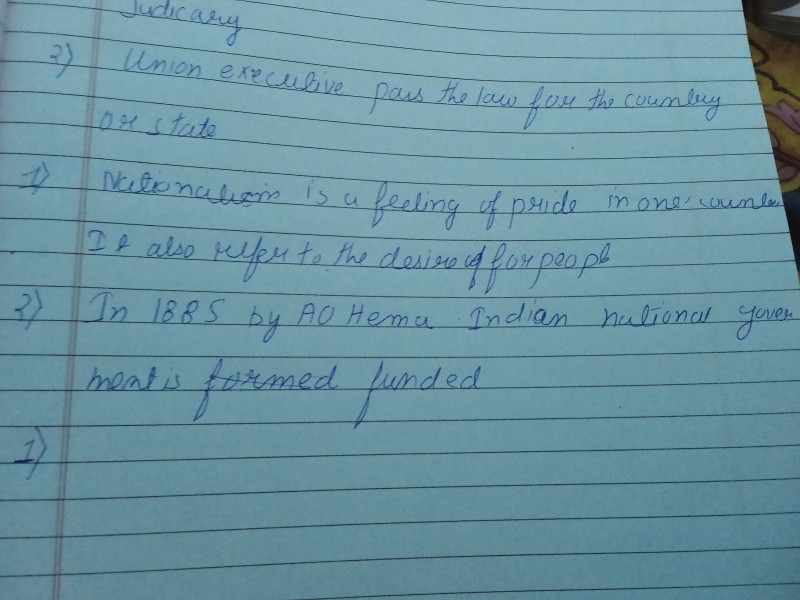 Judicary
2) Union executive pass the law for the country
or state
1) Nationalism is a feeling of pride in one's
It also refer to the desire of for peopl
2) In 1885 by AO Hema Indian national gover
ment is formed funded
1)